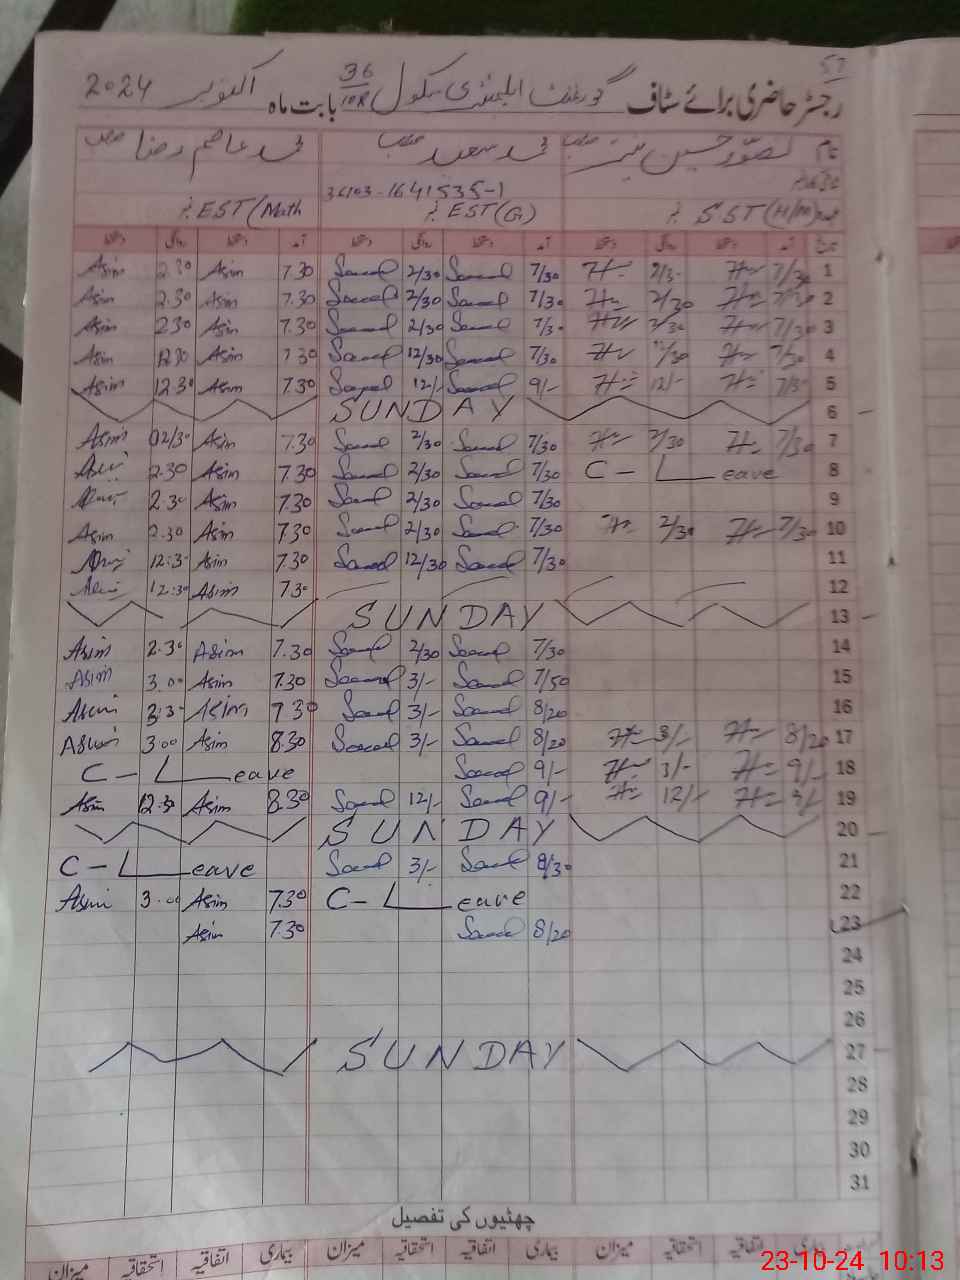 57
رجسٹر حاضری برائے سٹاف گورنمنٹ ایلیمنٹری سکول 36/10R بابت ماہ اکتوبر 2024
نام تصور حسین محمد سعید محمد عاصم رضا
36103-1641535-1
SST(H/M) EST(G) EST(Math
آمد دستخط روانگی دستخط آمد دستخط روانگی دستخط آمد دستخط روانگی دستخط
Asim 2.30 Asim 7.30 Saeed 2/30 Saeed 7/30 2/3- 7/30 1
Asim 2.30 Asim 7.30 Saeed 2/30 Saeed 7/30 2/30 7/30 2
Asim 2.30 Asim 7.30 Saeed 2/30 Saeed 7/3- 2/30 7/30 3
Asim 12.30 Asim 7.30 Saeed 12/30 Saeed 7/30 12/30 7/30 4
Asim 12.30 Asim 7.30 Saeed 12/- Saeed 9/- 12/- 7/3- 5
SUNDAY 6
Asim 02/30 Asim 7.30 Saeed 2/30 Saeed 7/30 2/30 7/30 7
Asim 2.30 Asim 7.30 Saeed 2/30 Saeed 7/30 C-Leave 8
Asim 2.30 Asim 7.30 Saeed 2/30 Saeed 7/30 9
Asim 2.30 Asim 7.30 Saeed 2/30 Saeed 7/30 2/30 7/30 10
Asim 12:30 Asim 7.30 Saeed 12/30 Saeed 7/30 11
Asim 12:30 Asim 730 12
SUNDAY 13
Asim 2.30 Asim 7.30 Saeed 2/30 Saeed 7/30 14
Asim 3.00 Asim 7.30 Saeed 3/- Saeed 7/50 15
Asim 3.3- Asim 730 Saeed 3/- Saeed 8/20 16
Asim 3.00 Asim 8.30 Saeed 3/- Saeed 8/20 3/- 8/20 17
C-Leave Saeed 9/- 3/- 9/- 18
Asim 12.30 Asim 8.30 Saeed 12/- Saeed 9/- 12/- 9/- 19
SUNDAY 20
C-Leave Saeed 3/- Saeed 8/30 21
Asim 3.00 Asim 7.30 C-Leave 22
Asim 7.30 Saeed 8/20 23
24
25
26
SUNDAY 27
28
29
30
31
چھٹیوں کی تفصیل
بیماری اتفاقیہ استحقاقیہ میزان بیماری اتفاقیہ استحقاقیہ میزان بیماری اتفاقیہ استحقاقیہ میزان
23-10-24 10:13